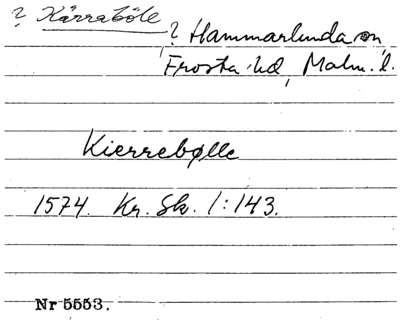 ? Kärraböle
? Hammarlunda sn,
Frosta hd, Malm. l.
Kierrebølle
1574. Kr. Sk. 1:143.
Nr 5553.